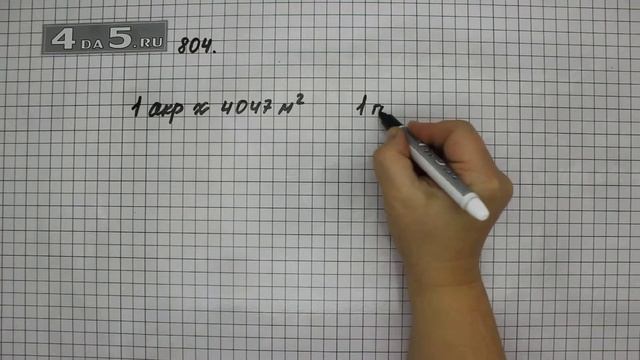 4DA5.RU 804.
1 акр ≈ 4047 м² 1 г